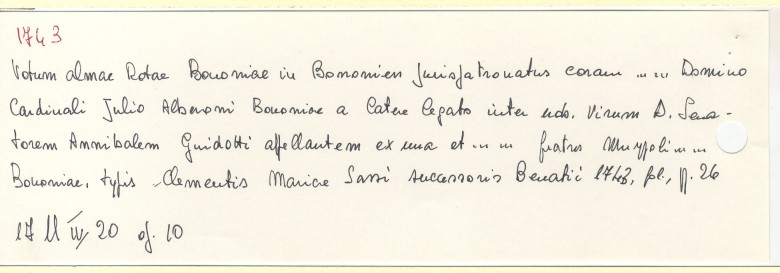 1743
Votum almae Rotae Bononiae in Bononien Jurispatronatus coram ... ... Domino
Cardinali Julio Alberoni Bononiae a Latere legato inter Virum D. Sena-
torem Annibalem Guidotti appellantem ex una et ... ... fratres ... ...
Bononiae, typis Clementis Mariae Sassi successoris Benatii 1743, fol., p. 26
17 20 op. 10